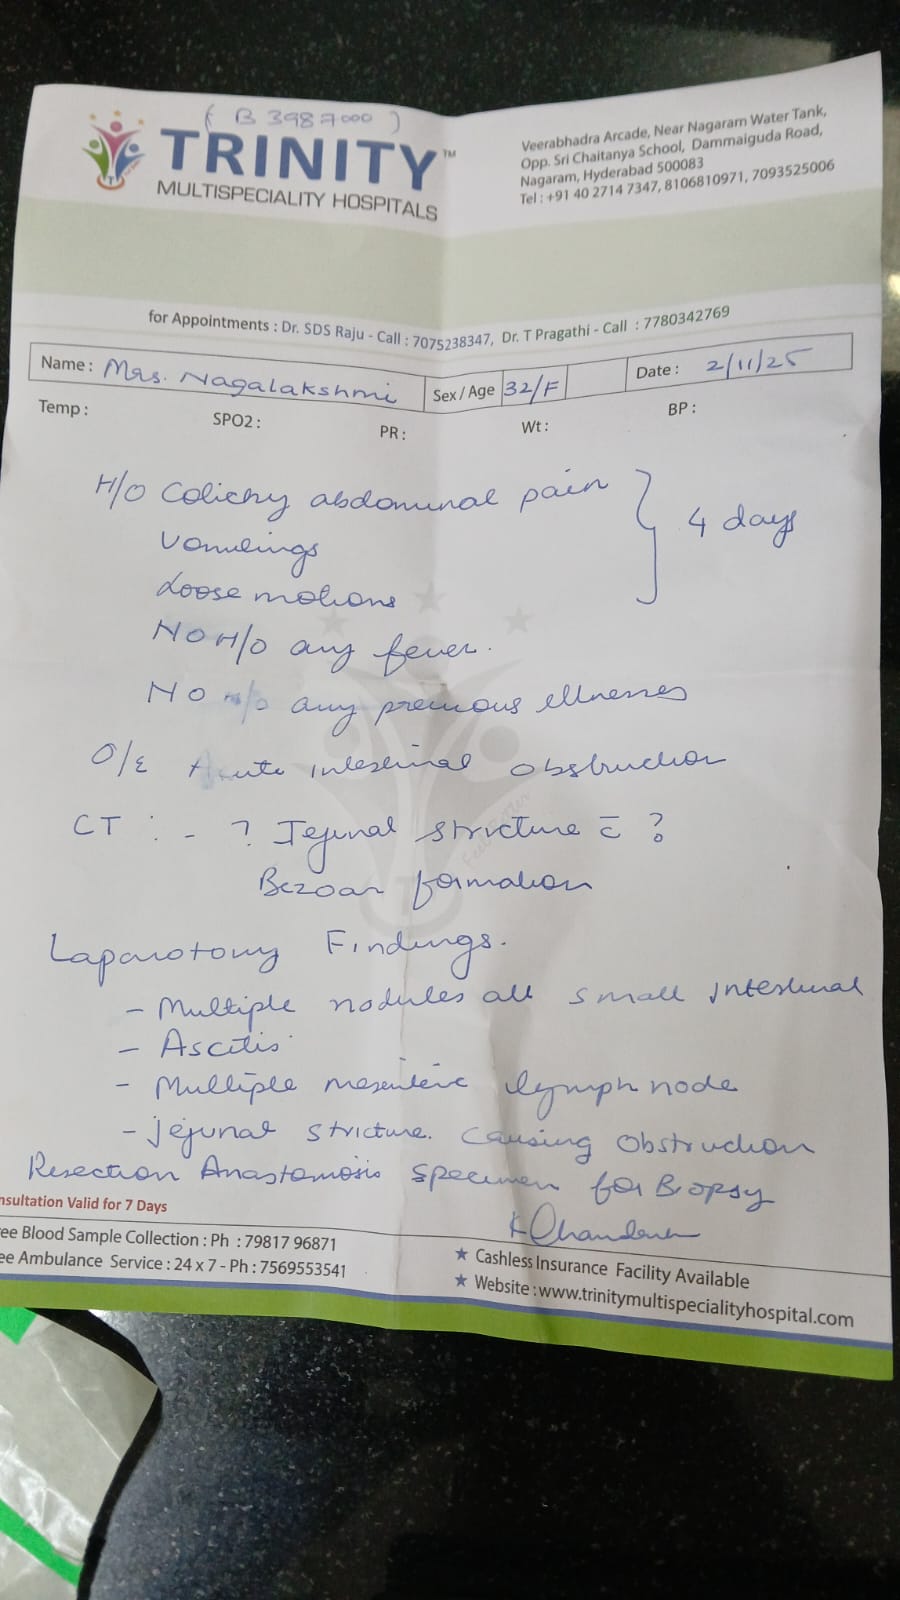 ( B 3987000 )
TRINITY™
MULTISPECIALITY HOSPITALS
Veerabhadra Arcade, Near Nagaram Water Tank,
Opp. Sri Chaitanya School, Dammaiguda Road,
Nagaram, Hyderabad 500083
Tel : +91 40 2714 7347, 8106810971, 7093525006
for Appointments : Dr. SDS Raju - Call : 7075238347, Dr. T Pragathi - Call : 7780342769
Name : Mrs. Nagalakshmi Sex / Age 32/F Date : 2/11/25
Temp : SPO2 : PR : Wt : BP :
H/O Colicky abdominal pain
Vomitings
Loose motions
} 4 days
NO H/O any fever.
NO H/o any previous illnesses
O/E Acute intestinal obstruction
CT : - ? Jejunal stricture c̄ ?
Bezoar formation
Laparotomy Findings.
- Multiple nodules all small intestinal
- Ascitis
- Multiple mesenteric lymph node
- jejunal stricture. causing obstruction
Resection Anastomosis specimen for Biopsy
nsultation Valid for 7 Days
ee Blood Sample Collection : Ph : 79817 96871
ee Ambulance Service : 24 x 7 - Ph : 7569553541
★ Cashless Insurance Facility Available
★ Website : www.trinitymultispecialityhospital.com